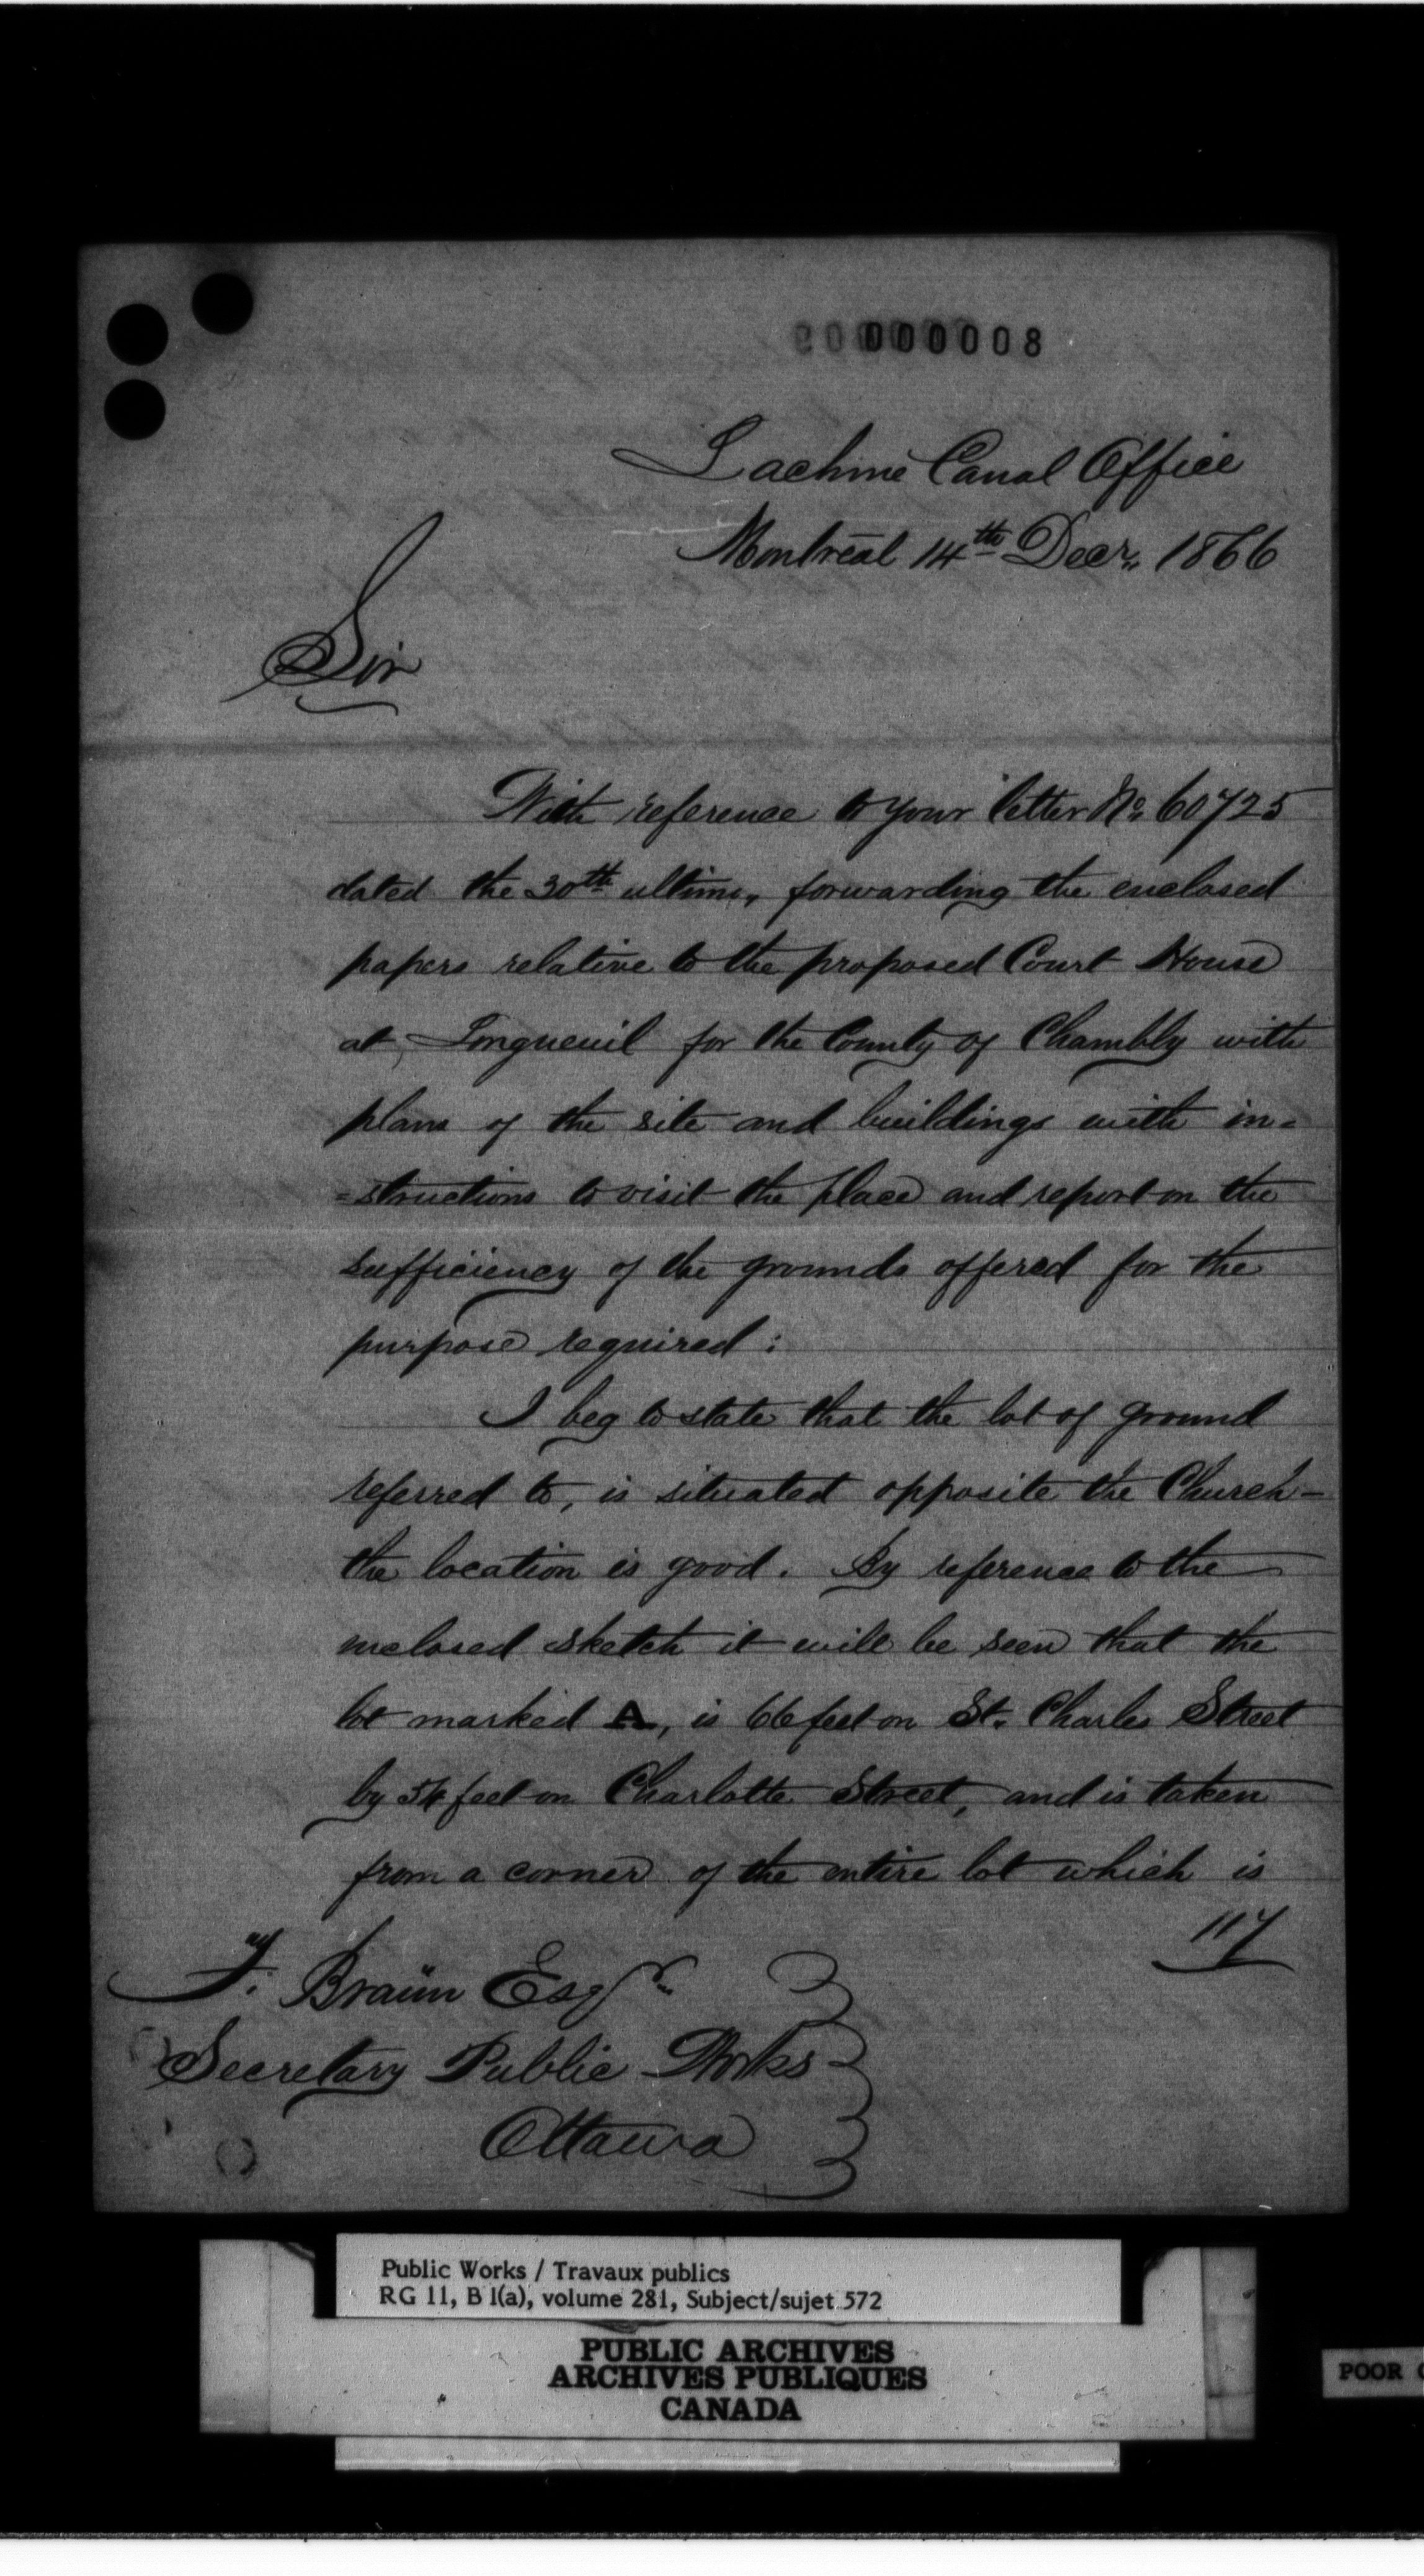 000008
Lachine Canal Office
Montreal 14th Decr. 1866
Sir
With reference to your letter No. 60725
dated the 30th ultimo, forwarding the enclosed
papers relative to the proposed Court House
at Longueuil for the County of Chambly with
plans of the site and buildings with in=
=structions to visit the place and report on the
sufficiency of the grounds offered for the
purpose required:
I beg to state that the lot of ground
referred to, is situated opposite the Church-
the location is good. By reference to the
inclosed sketch it will be seen that the
lot marked A, is 66 feet on St. Charles Street
by 54 feet on Charlotte Street, and is taken
from a corner of the entire lot which is
117
F. Braün Esqr
Secretary Public Works
Ottawa
Public Works / Travaux publics
RG 11, B 1(a), volume 281, Subject/sujet 572
PUBLIC ARCHIVES
ARCHIVES PUBLIQUES
CANADA
POOR